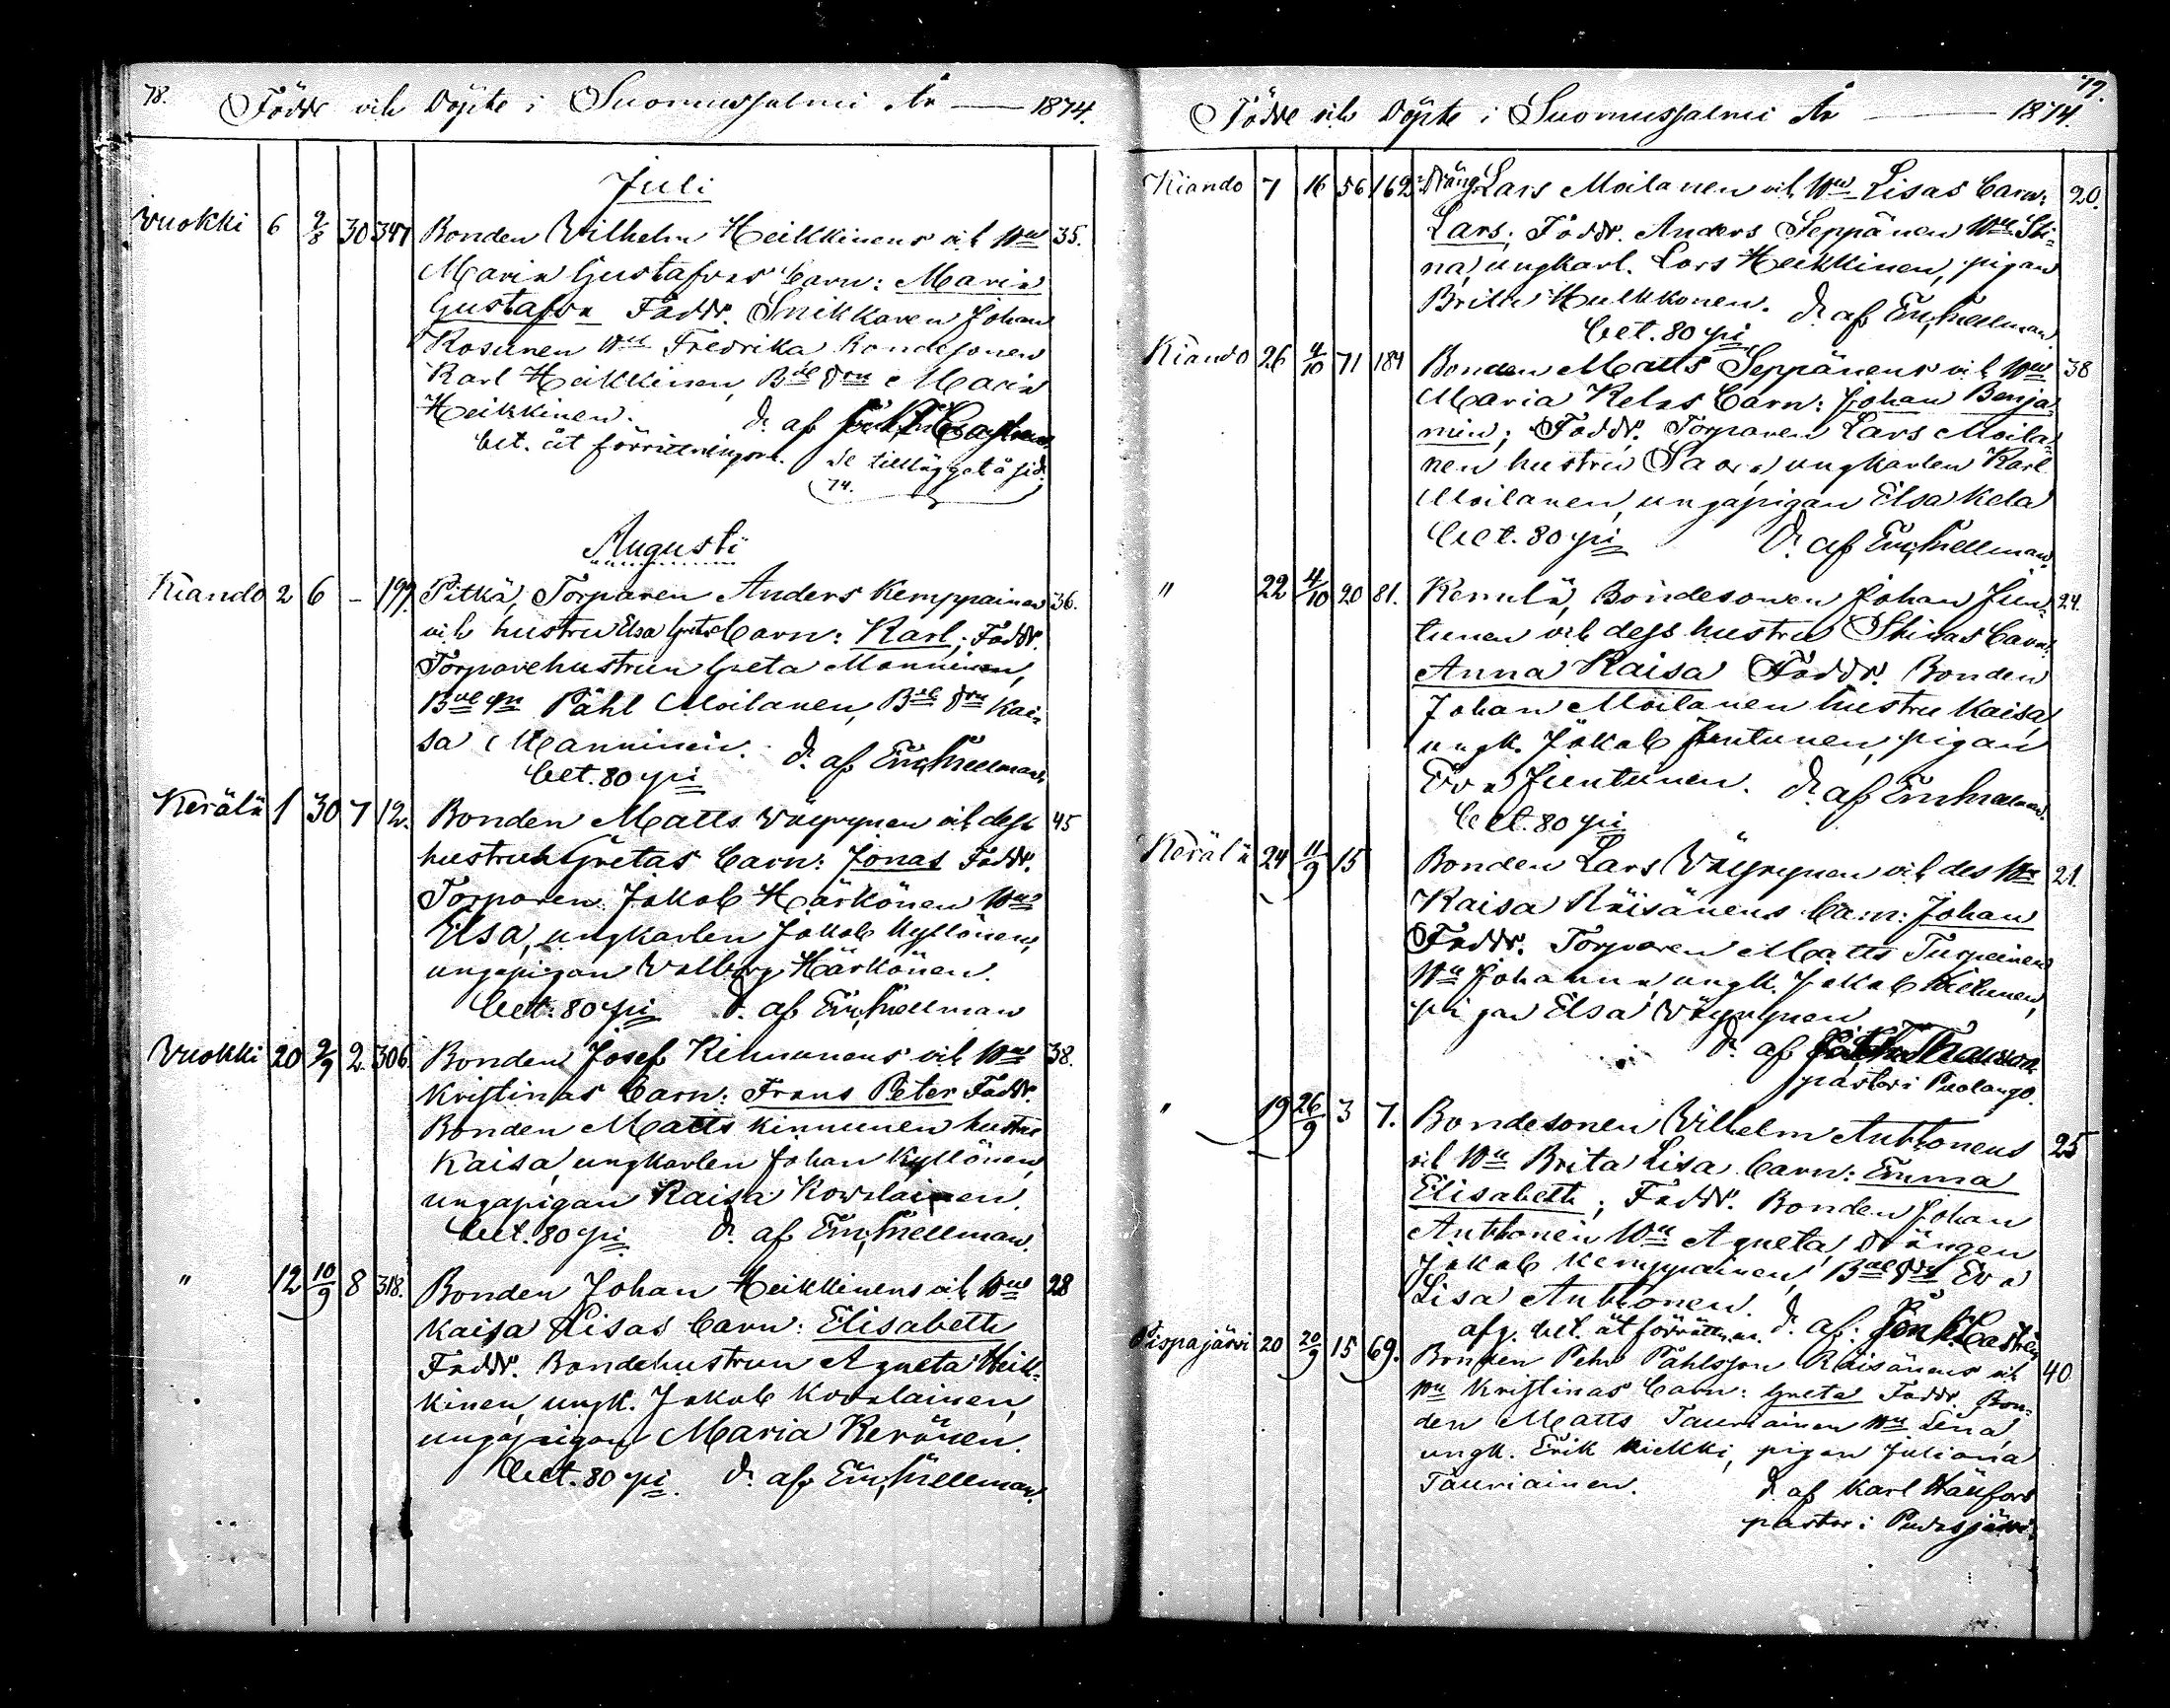 78.
Födde och Döpte i Suomussalmi År — 1874.
Juli
Vuokki 6 9/8 30 347 Bonden Vilhelm Heikkinens och Hu 35.
Maria Gustafvas barn: Maria
Gustafva Faddr. Snikkaren Johan
Kosunen Hu Fredrika Bondesonen
Karl Heikkinen, Bde dru Maria
Heikkinen. D. af
bet. åt förrättningsm. Se tillägget å sid.
74.
Augusti
Kiando 2 6 – 199. Pitkä, Torparen Anders Kemppainen 36.
och hustru Elsa Gretas barn: Karl; Faddr.
Torparehustrun Greta Manninen,
Bde sn Påhl Moilanen, Bde dru Kai-
sa Manninen. D. af Em. Snellman.
bet. 80 pi
Kerälä 1 30 7 12. Bonden Matts Väyrynen och dess 45
hustrus Gretas barn: Jonas Faddr.
Torparen Jakob Härkönen Hus
Elsa, ungkarlen Jakob Kyllönen,
ungapigan Valborg Härkönen.
bet. 80 pi D. af Em. Snellman
Vuokki 20 9/9 2. 306. Bonden Josef Kinnunens och Hus 38.
Kristinas barn: Frans Peter Faddr.
Bonden Matts Kinnunen hustru
Kaisa, ungkarlen Johan Kyllönen,
ungapigan Kaisa Kovalainen.
bet. 80 pi D. af Em. Snellman.
" 12 10/9 8 318. Bonden Johan Heikkinens och Hus 28
Kaisa Lisas barn: Elisabeth
Faddr. Bondehustrun Agneta Heik-
kinen, ungk. Jakob Kovalainen,
ungapigan Maria Keränen.
bet. 80 pi. D. af Em. Snellman.
79.
Födde och Döpte i Suomussalmi År — 1874.
Kiando 7 16 56 162 Dräng Lars Moilanen och Hus Lisas barn: 20.
Lars; Faddr. Anders Seppänen Hu Sti-
na, ungkarl. Lars Heikkinen, pigan
Brita Hulkkonen. D. af Em. Snellman
bet. 80 pi
Kiando 26 4/10 71 184 Bonden Matts Seppänens och Hus 38
Maria Kelas barn: Johan Benja-
min; Faddr. Torparen Lars Moila-
nen hustru Sara, ungkarlen Karl
Moilanen, ungapigan Elsa Kela
bet. 80 pi D. af Em. Snellman
" 22 4/10 20 81. Kemilä, Bondesonen Johan Jun- 24.
tunen och dess hustru Stinas barn:
Anna Kaisa Faddr. Bonden
Johan Moilanen hustru Kaisa,
ungk. Jakob Juntunen, pigan
Eva Juntunen. D. af Em. Snellman.
bet. 80 pi
Kerälä 24 11/9 15 Bonden Lars Väyrynen och des Hu 21.
Kaisa Räisänens barn: Johan
Faddr. Torparen Matts Turpeinen
Hu Johanna, ungk. Jakob
pigan Elsa Väyrynen
D. af
pastor i Puolango.
" 19 26/9 3 7. Bondesonen Vilhelm Anttonens 25
och Hu Brita Lisa barn: Emma
Elisabeth; Faddr. Bonden Johan
Anttonen Hu Agneta, drängen
Jakob Kemppainen, Bde dru Eva
Lisa Anttonen.
afg. bet. åt förrättn.m. D. af: Castrén
Pispajärvi 20 20/9 15 69. Bonden Pehr Påhlsson Räisänens och 40
Hu Kristinas barn: Greta Faddr. Bon-
den Matts Tauriainen Hu Lena,
ungk. Erik Kiekki, pigan Juliana
Tauriainen. D. af Karl Hällfors
pastor i Pudasjärvi.